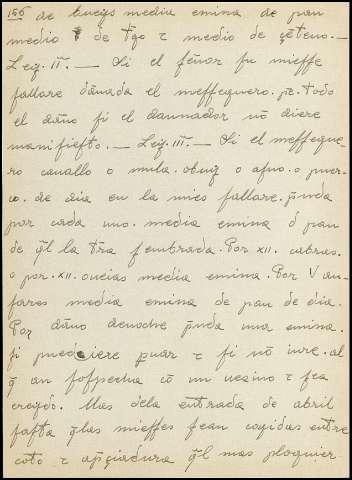 166 de bueys media emina de pan
medio de tgo τ medio de çẽteno.—
Ley. II.— Si el ſẽnor ſu mieſſe
fallare dãnada el meſſeguero. pe. todo
el dãno ſi el dannador nõ diere
manifieſto.— Ley. III.— Si el meſſegue-
ro cauallo o mula. obuey o aſno. o puer-
co. de dia en la mies fallare. p̃nda
por cada uno. media emina d pan
de q̃l la tr̃a ſembrada. Por XII. cabras.
o por. XII. oueias media emina. Por V an-
ſares media emina de pan de dia.
Por dãno denoche p̃nda una emina.
ſi pudiere p̃uar τ ſi nõ iure. al
q̃ an ſoſpecha cõ un uezino τ ſea
creydo. Mas dela entrada de abril
faſta q̃las mieſſes ſean cogidas entre
coto τ ap̃çiadura q̃l mas ploguier